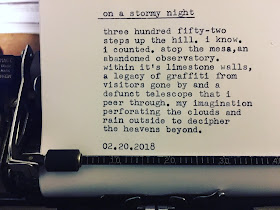 on a stormy night
three hundred fifty-two
steps up the hill. i know.
i counted. stop the mesa,an
abandoned observatory.
within it's limestone walls,
a legacy of graffiti from
visitors gone by and a
defunct telescope that i
peer through. my imagination
perforating the clouds and
rain outside to decipher
the heavens beyond.
02.20.2018